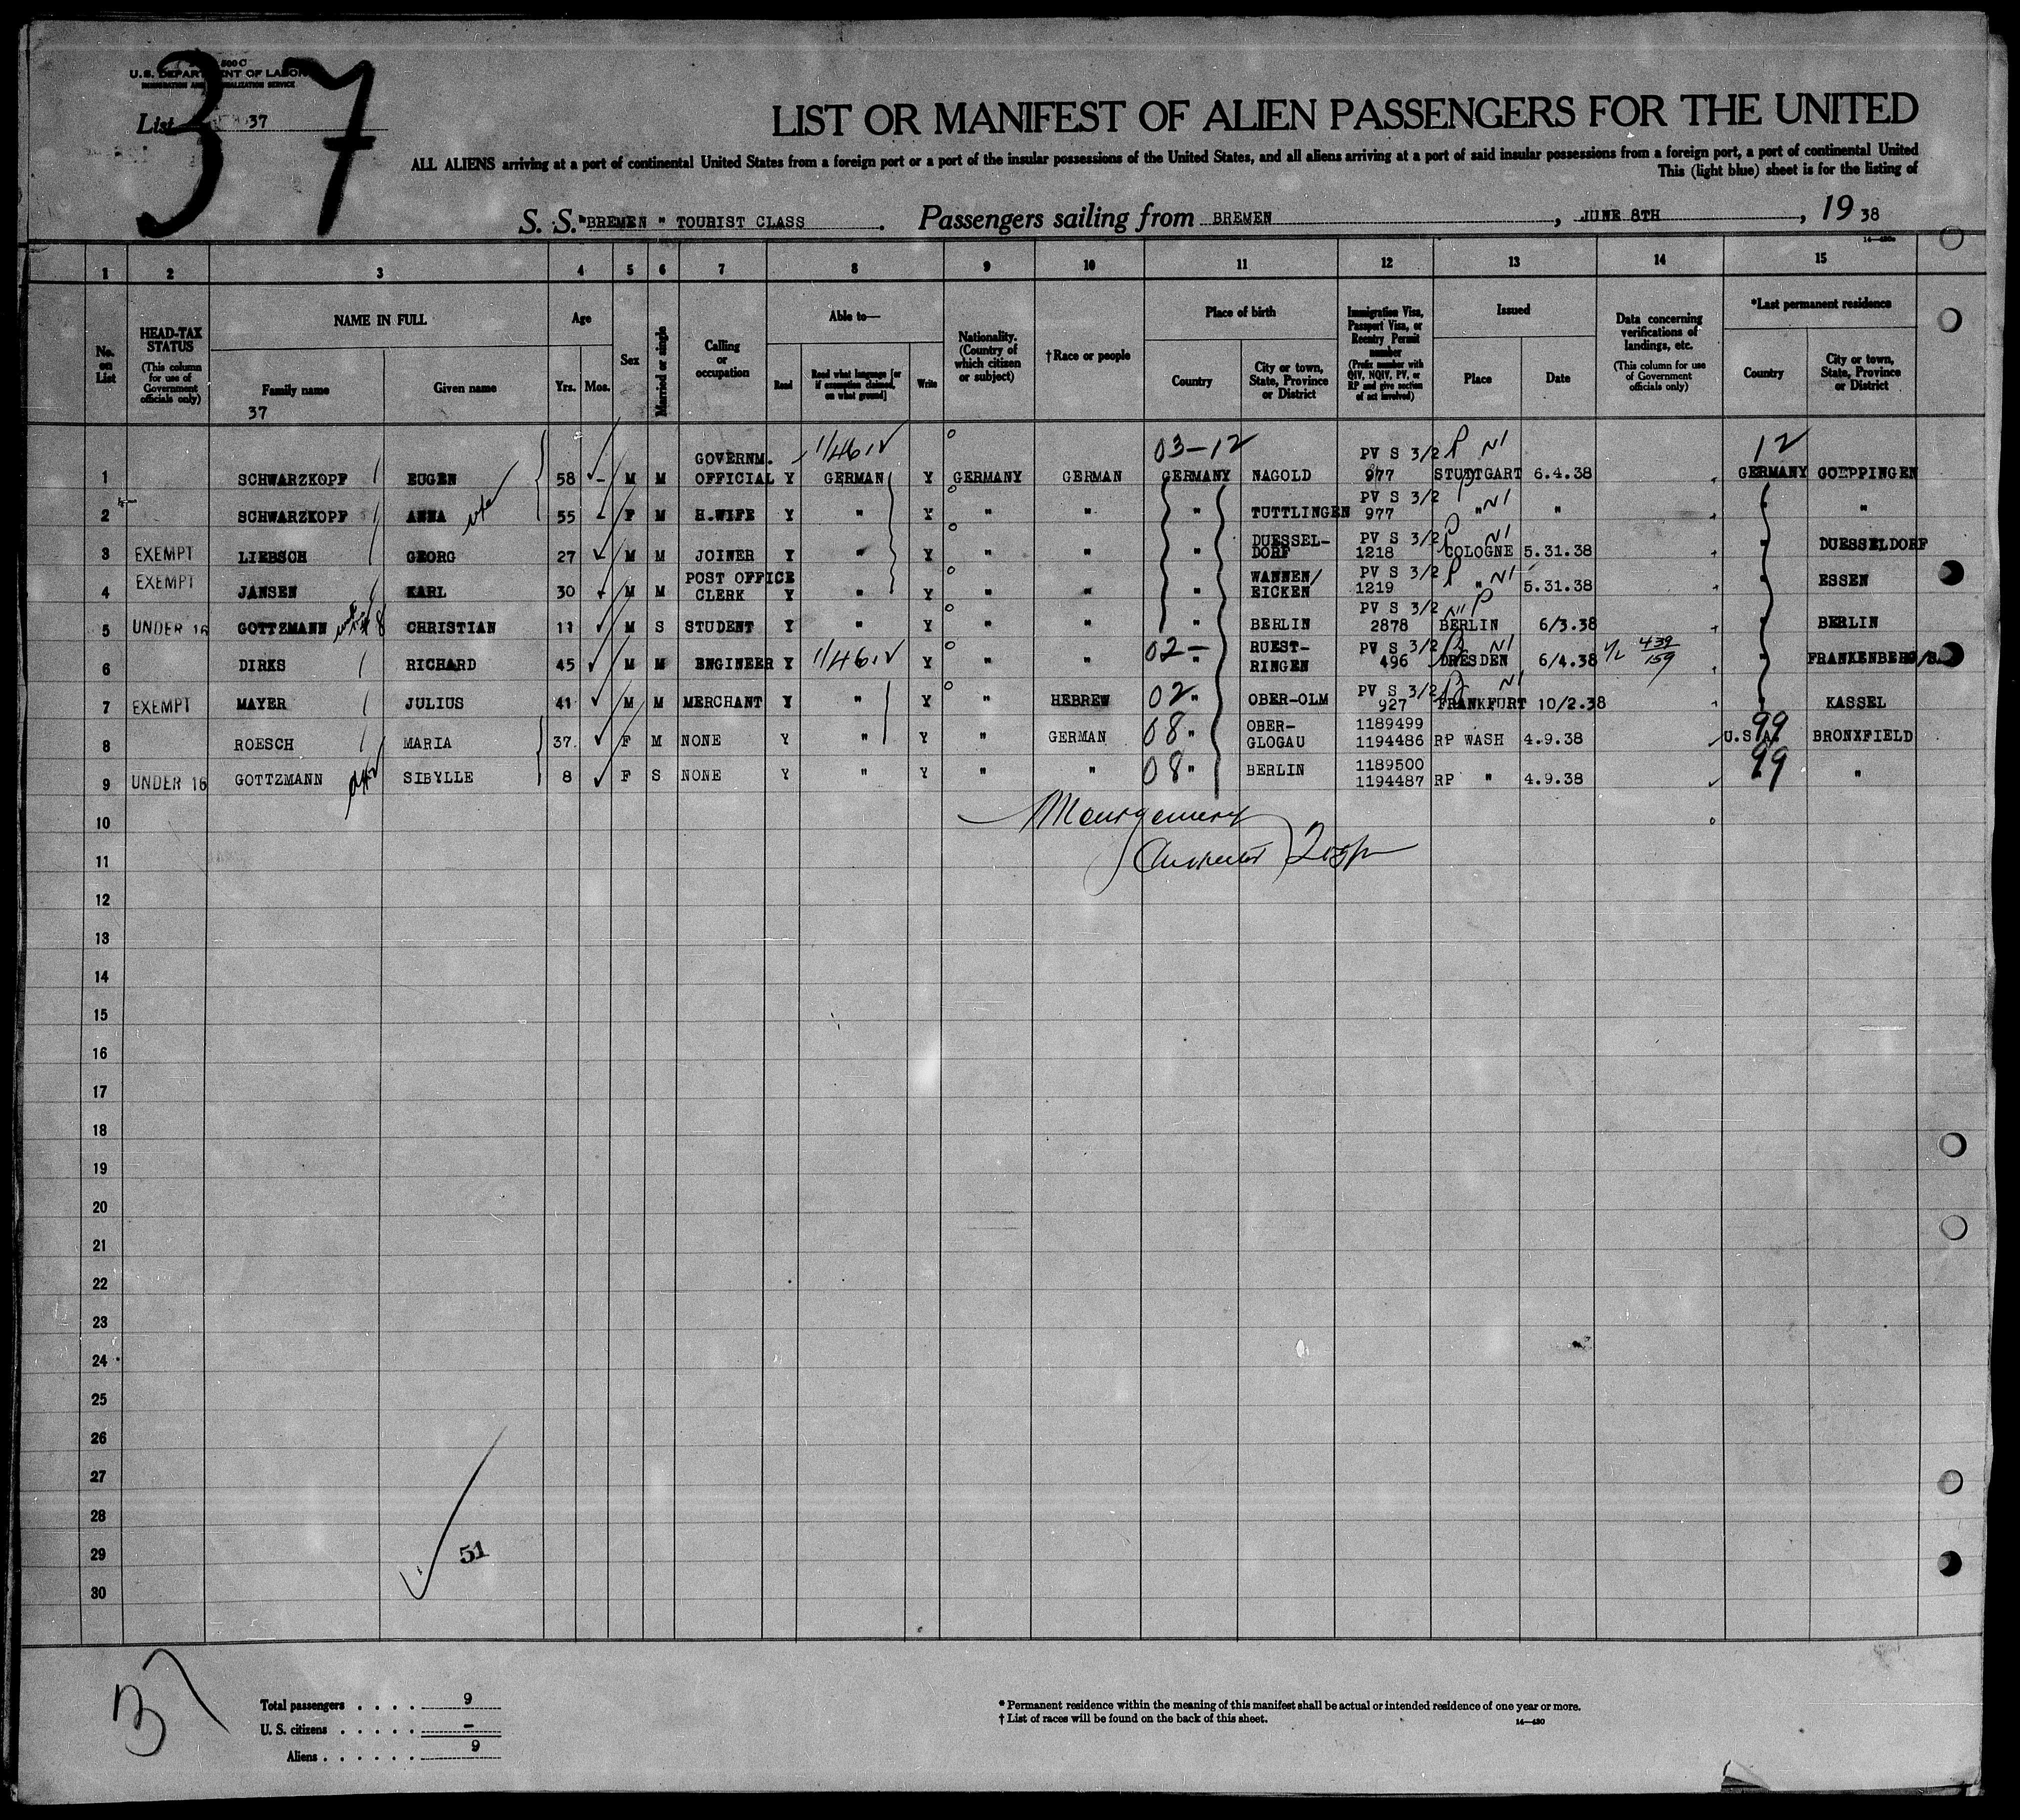 500 C
U.S. DEPARTMENT OF LABOR
IMMIGRATION AND NATURALIZATION SERVICE
List 37
37
LIST OR MANIFEST OF ALIEN PASSENGERS FOR THE UNITED
ALL ALIENS arriving at a port of continental United States from a foreign port or a port of the insular possessions of the United States, and all aliens arriving at a port of said insular possessions from a foreign port, a port of continental United
This (light blue) sheet is for the listing of
S. S. "BREMEN" TOURIST CLASS. Passengers sailing from BREMEN, JUNE 8TH, 19 38
1 2 3 4 5 6 7 8 9 10 11 12 13 14 15
No. on List
HEAD-TAX STATUS (This column for use of Government officials only)
NAME IN FULL
Family name
37
Given name
Age
Yrs. Mos.
Sex
Married or single
Calling or occupation
Able to—
Read
Read what language [or if exemption claimed, on what ground]
Write
Nationality. (Country of which citizen or subject)
†Race or people
Place of birth
Country
City or town, State, Province or District
Immigration Visa, Passport Visa, or Reentry Permit number (Prefix number with QIV, NQIV, PV, or RP and give section of act involved)
Issued
Place
Date
Data concerning verifications of landings, etc. (This column for use of Government officials only)
*Last permanent residence
Country
City or town, State, Province or District
03-12 12
1 SCHWARZKOPF EUGEN 58 - M M GOVERNM. OFFICIAL Y GERMAN Y GERMANY GERMAN GERMANY NAGOLD PV S 3/2 977 P NI STUTTGART 6.4.38 GERMANY GOEPPINGEN
2 SCHWARZKOPF ANNA 55 - F M H.WIFE Y " Y " " " TUTTLINGEN PV S 3/2 977 P " NI " " "
3 EXEMPT LIEBSCH GEORG 27 M M JOINER Y " Y " " " DUESSEL-DORF PV S 3/2 1218 P NI COLOGNE 5.31.38 " DUESSELDORF
4 EXEMPT JANSEN KARL 30 M M POST OFFICE CLERK Y " Y " " " WANNEN/EICKEN PV S 3/2 1219 P " NI 5.31.38 " ESSEN
5 UNDER 16 GOTTZMANN CHRISTIAN 11 M S STUDENT Y " Y " " " BERLIN PV S 3/2 2878 P BERLIN 6/3.38 " BERLIN
6 DIRKS RICHARD 45 M M ENGINEER Y Y " " 02- " RUEST-RINGEN PV S 3/2 496 NI DRESDEN 6/4.38 439 159 " FRANKENBERG/S.
7 EXEMPT MAYER JULIUS 41 M M MERCHANT Y " Y " HEBREW 02 " OBER-OLM PV S 3/2 927 NI FRANKFURT 10/2.38 " KASSEL
8 ROESCH MARIA 37 F M NONE Y " Y " GERMAN 08 " OBER-GLOGAU 1189499 1194486 RP WASH 4.9.38 U.S.A. 99 BRONXFIELD
9 UNDER 16 GOTTZMANN SIBYLLE 8 F S NONE Y " Y " " 08 " BERLIN 1189500 1194487 RP " 4.9.38 99 "
10
11
12
13
14
15
16
17
18
19
20
21
22
23
24
25
26
27
28
29
30
51
37
Total passengers . . . . 9
U. S. citizens . . . . . —
Aliens . . . . . . 9
* Permanent residence within the meaning of this manifest shall be actual or intended residence of one year or more.
† List of races will be found on the back of this sheet.
14—480